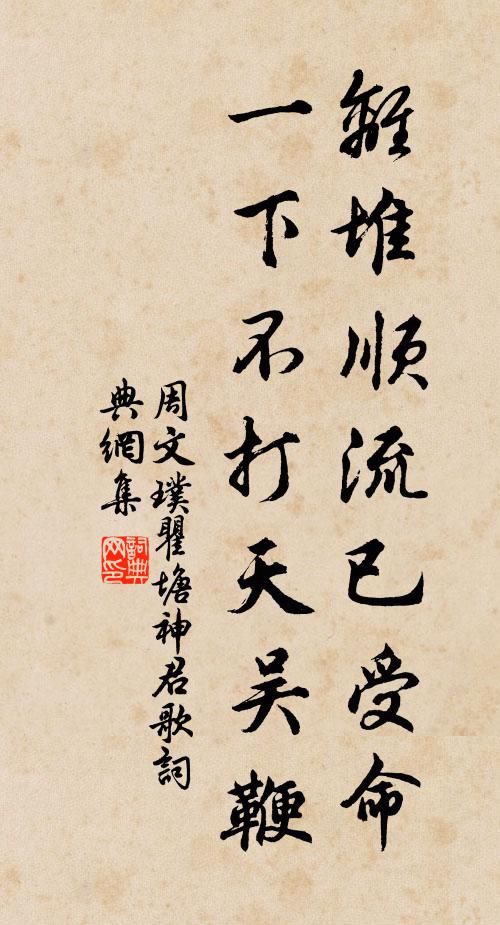 離堆順流已受命
一下不打天吳鞭
周文璞瞿塘神君歌詞
典網集
詞典網印